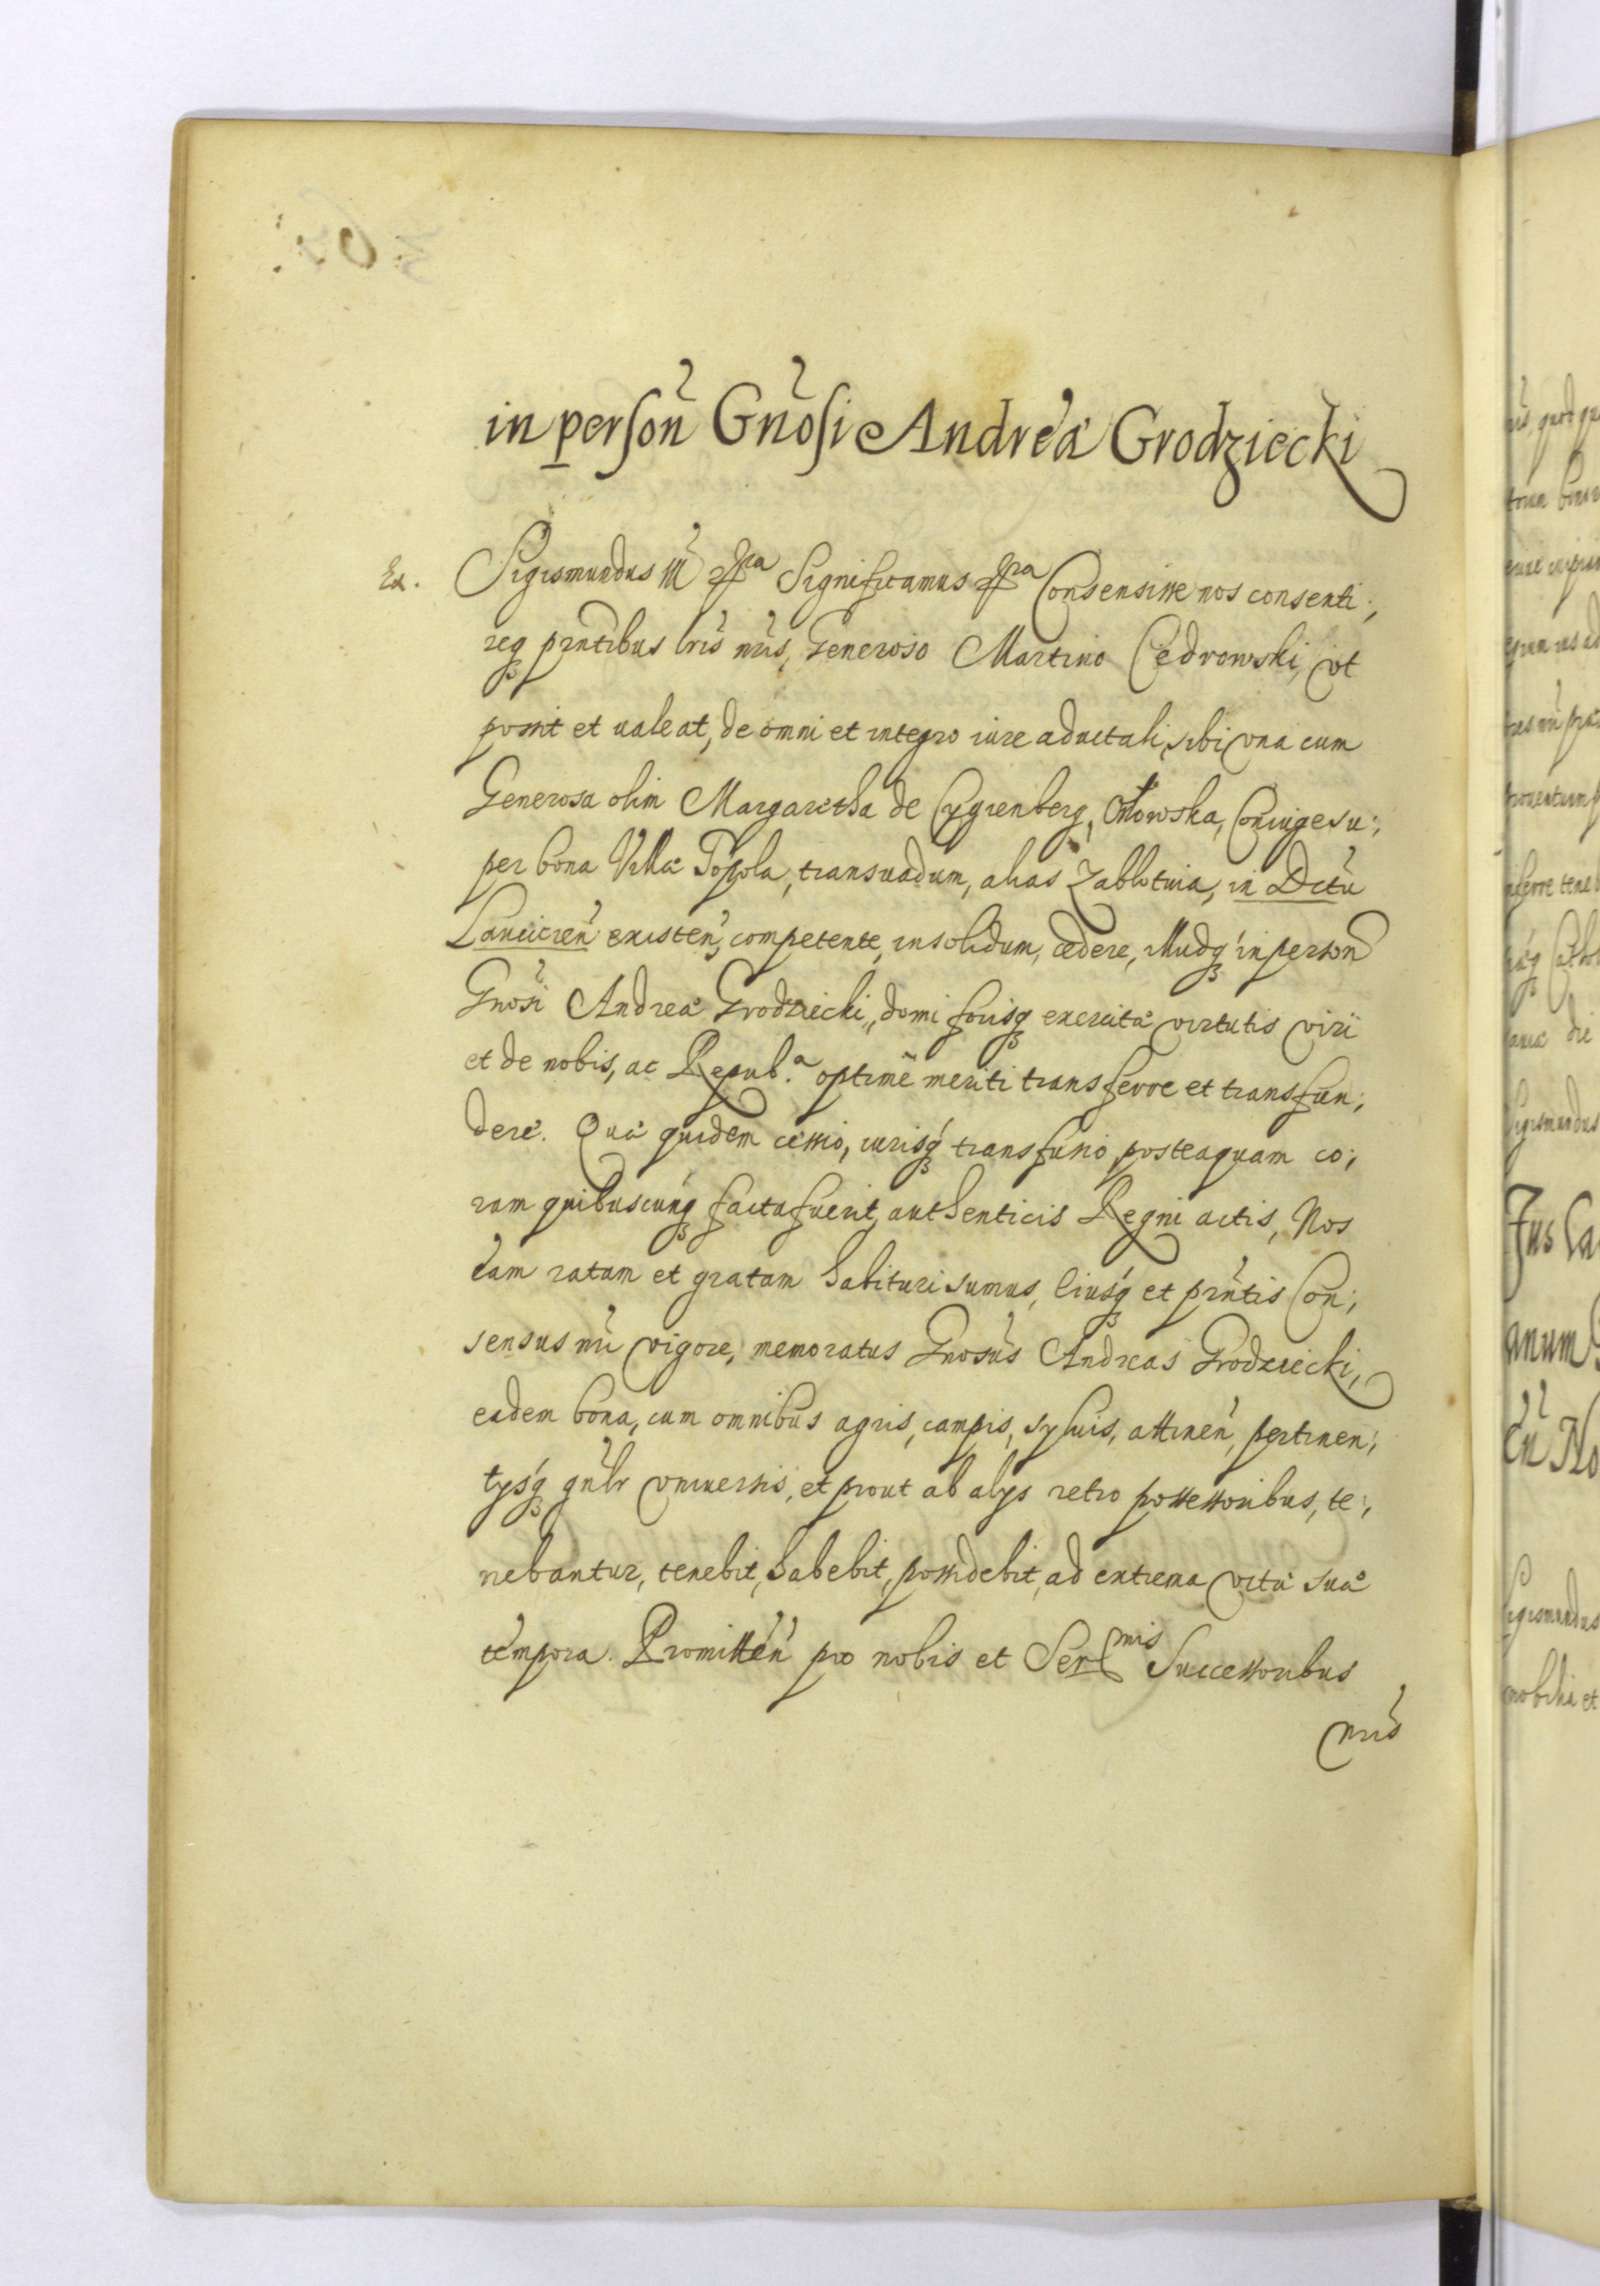 in person̄ Gn̄osi Andreæ Grodziecki
Ex. Sigismundus III etc̄ra Significamus etc̄ra Consensisse nos consenti,
req̨ pr̄ntibus lr̄is nr̄is, Generoso Martino Cedrowski, vt
possit et ualeat, de omni et integro iure aduitali, sibi vna cum
Generosa olim Margaretha de Cygenberg, Coniuge su,
per bona Villæ Topola, transuadum, alias Zablotnia, in Dctū
Lancicien̄ existen̄, competente, insolidum, cædere, illudq̨ in person̄
Gnosi Andreæ Grodziecki, domi forisq̨ exercitæ virtutis viri
et de nobis, ac Repub.ᵃ optimē meriti transferre et transfun,
dere. Quæ quidem cessio, iurisq̨ transfusio, posteaquam co,
ram quibuscunq̨ facta fuerit, authenticis Regni actis, Nos
eam ratam et gratam habituri sumus, Eiusq̨ et prn̄tis Con,
sensus nr̄i vigore, memoratus Gnosus Andreas Grodziecki,
eadem bona, cum omnibus agris, campis, syluis, attinen̄, pertinen,
tysq̨ gn̄lr vniuersis, et prout ab alys retro possessoribus, te,
nebantur, tenebit, habebit, possidebit, ad extrema vitæ suæ
tempora. Promitten̄ pro nobis et Ser^mis Successoribus
nr̄is